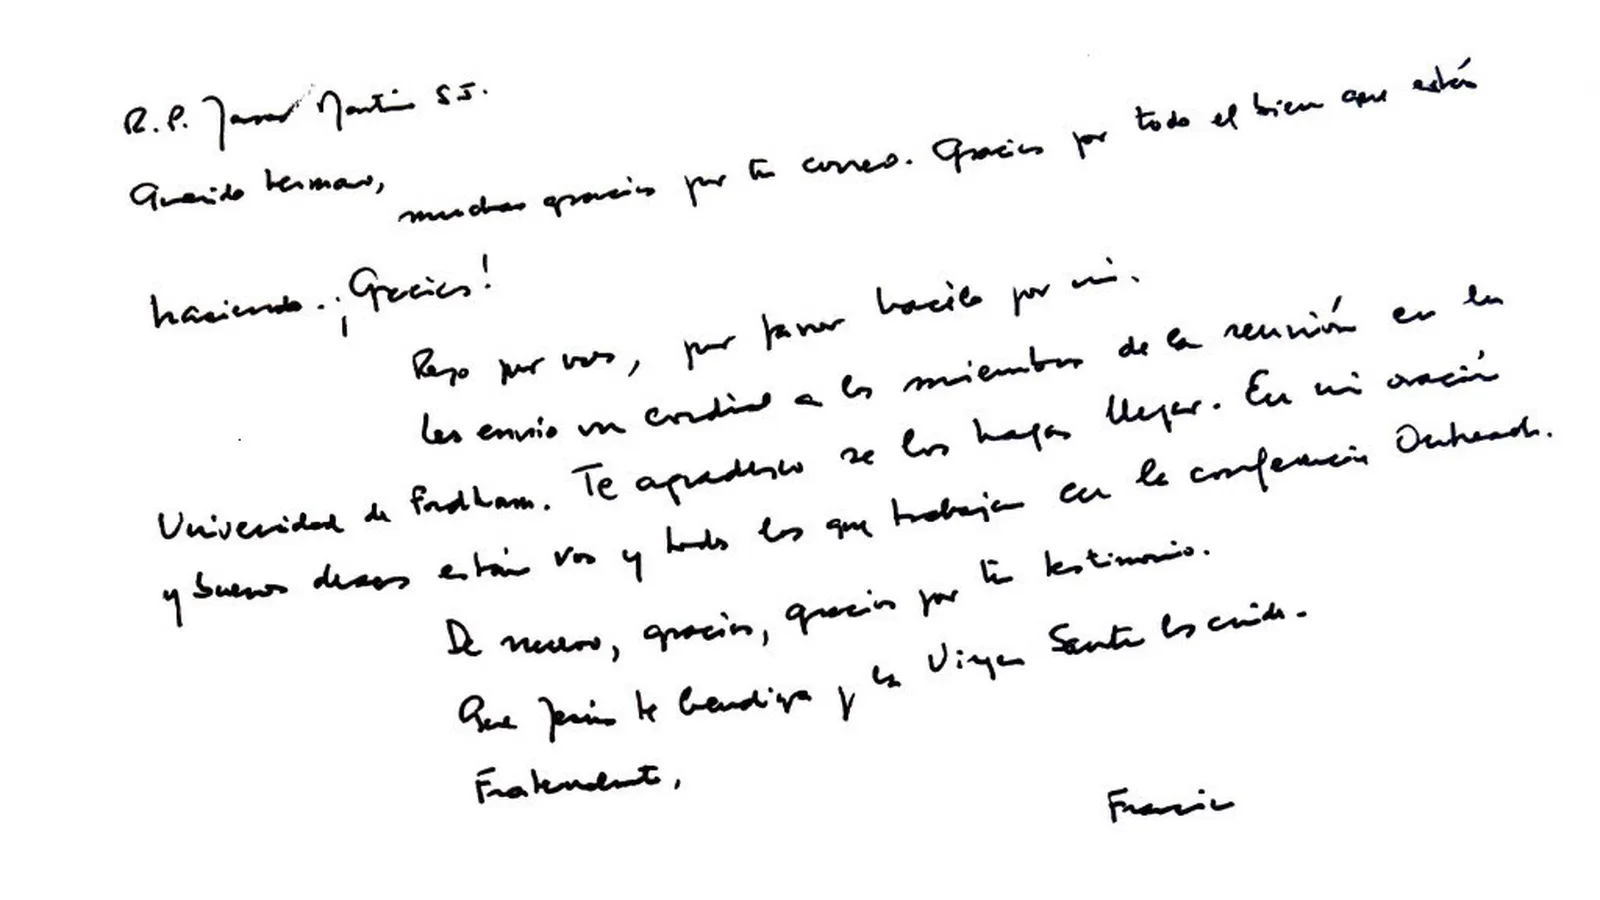 R.P. James Martin SJ.
Querido hermano,
muchas gracias por tu correo. Gracias por todo el bien que estás
haciendo. ¡Gracias!
Rezo por vos, por favor hacelo por mi.
Les envio un cordial a los miembros de la reunión en la
Universidad de Fordham. Te agradezco se los hagas llegar. En mi oración
y buenos deseos están vos y todos los que trabajan en la conferencia Outreach.
De nuevo, gracias, gracias por tu testimonio.
Que Jesús te bendiga y la Virgen Santa los cuide.
Fraternalmente,
Francisco